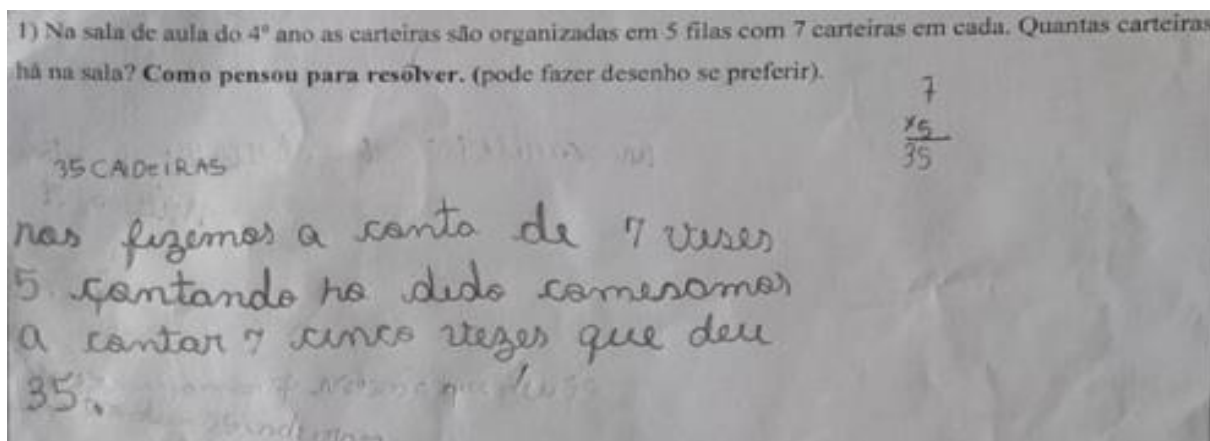 1) Na sala de aula do 4º ano as carteiras são organizadas em 5 filas com 7 carteiras em cada. Quantas carteiras
há na sala? Como pensou para resolver. (pode fazer desenho se preferir).
7
x5
35
35 CADEiRAS
nos fizemos a conta de 7 veses
5 contando no dedo comesamos
a contar 7 cinco vezes que deu
35.